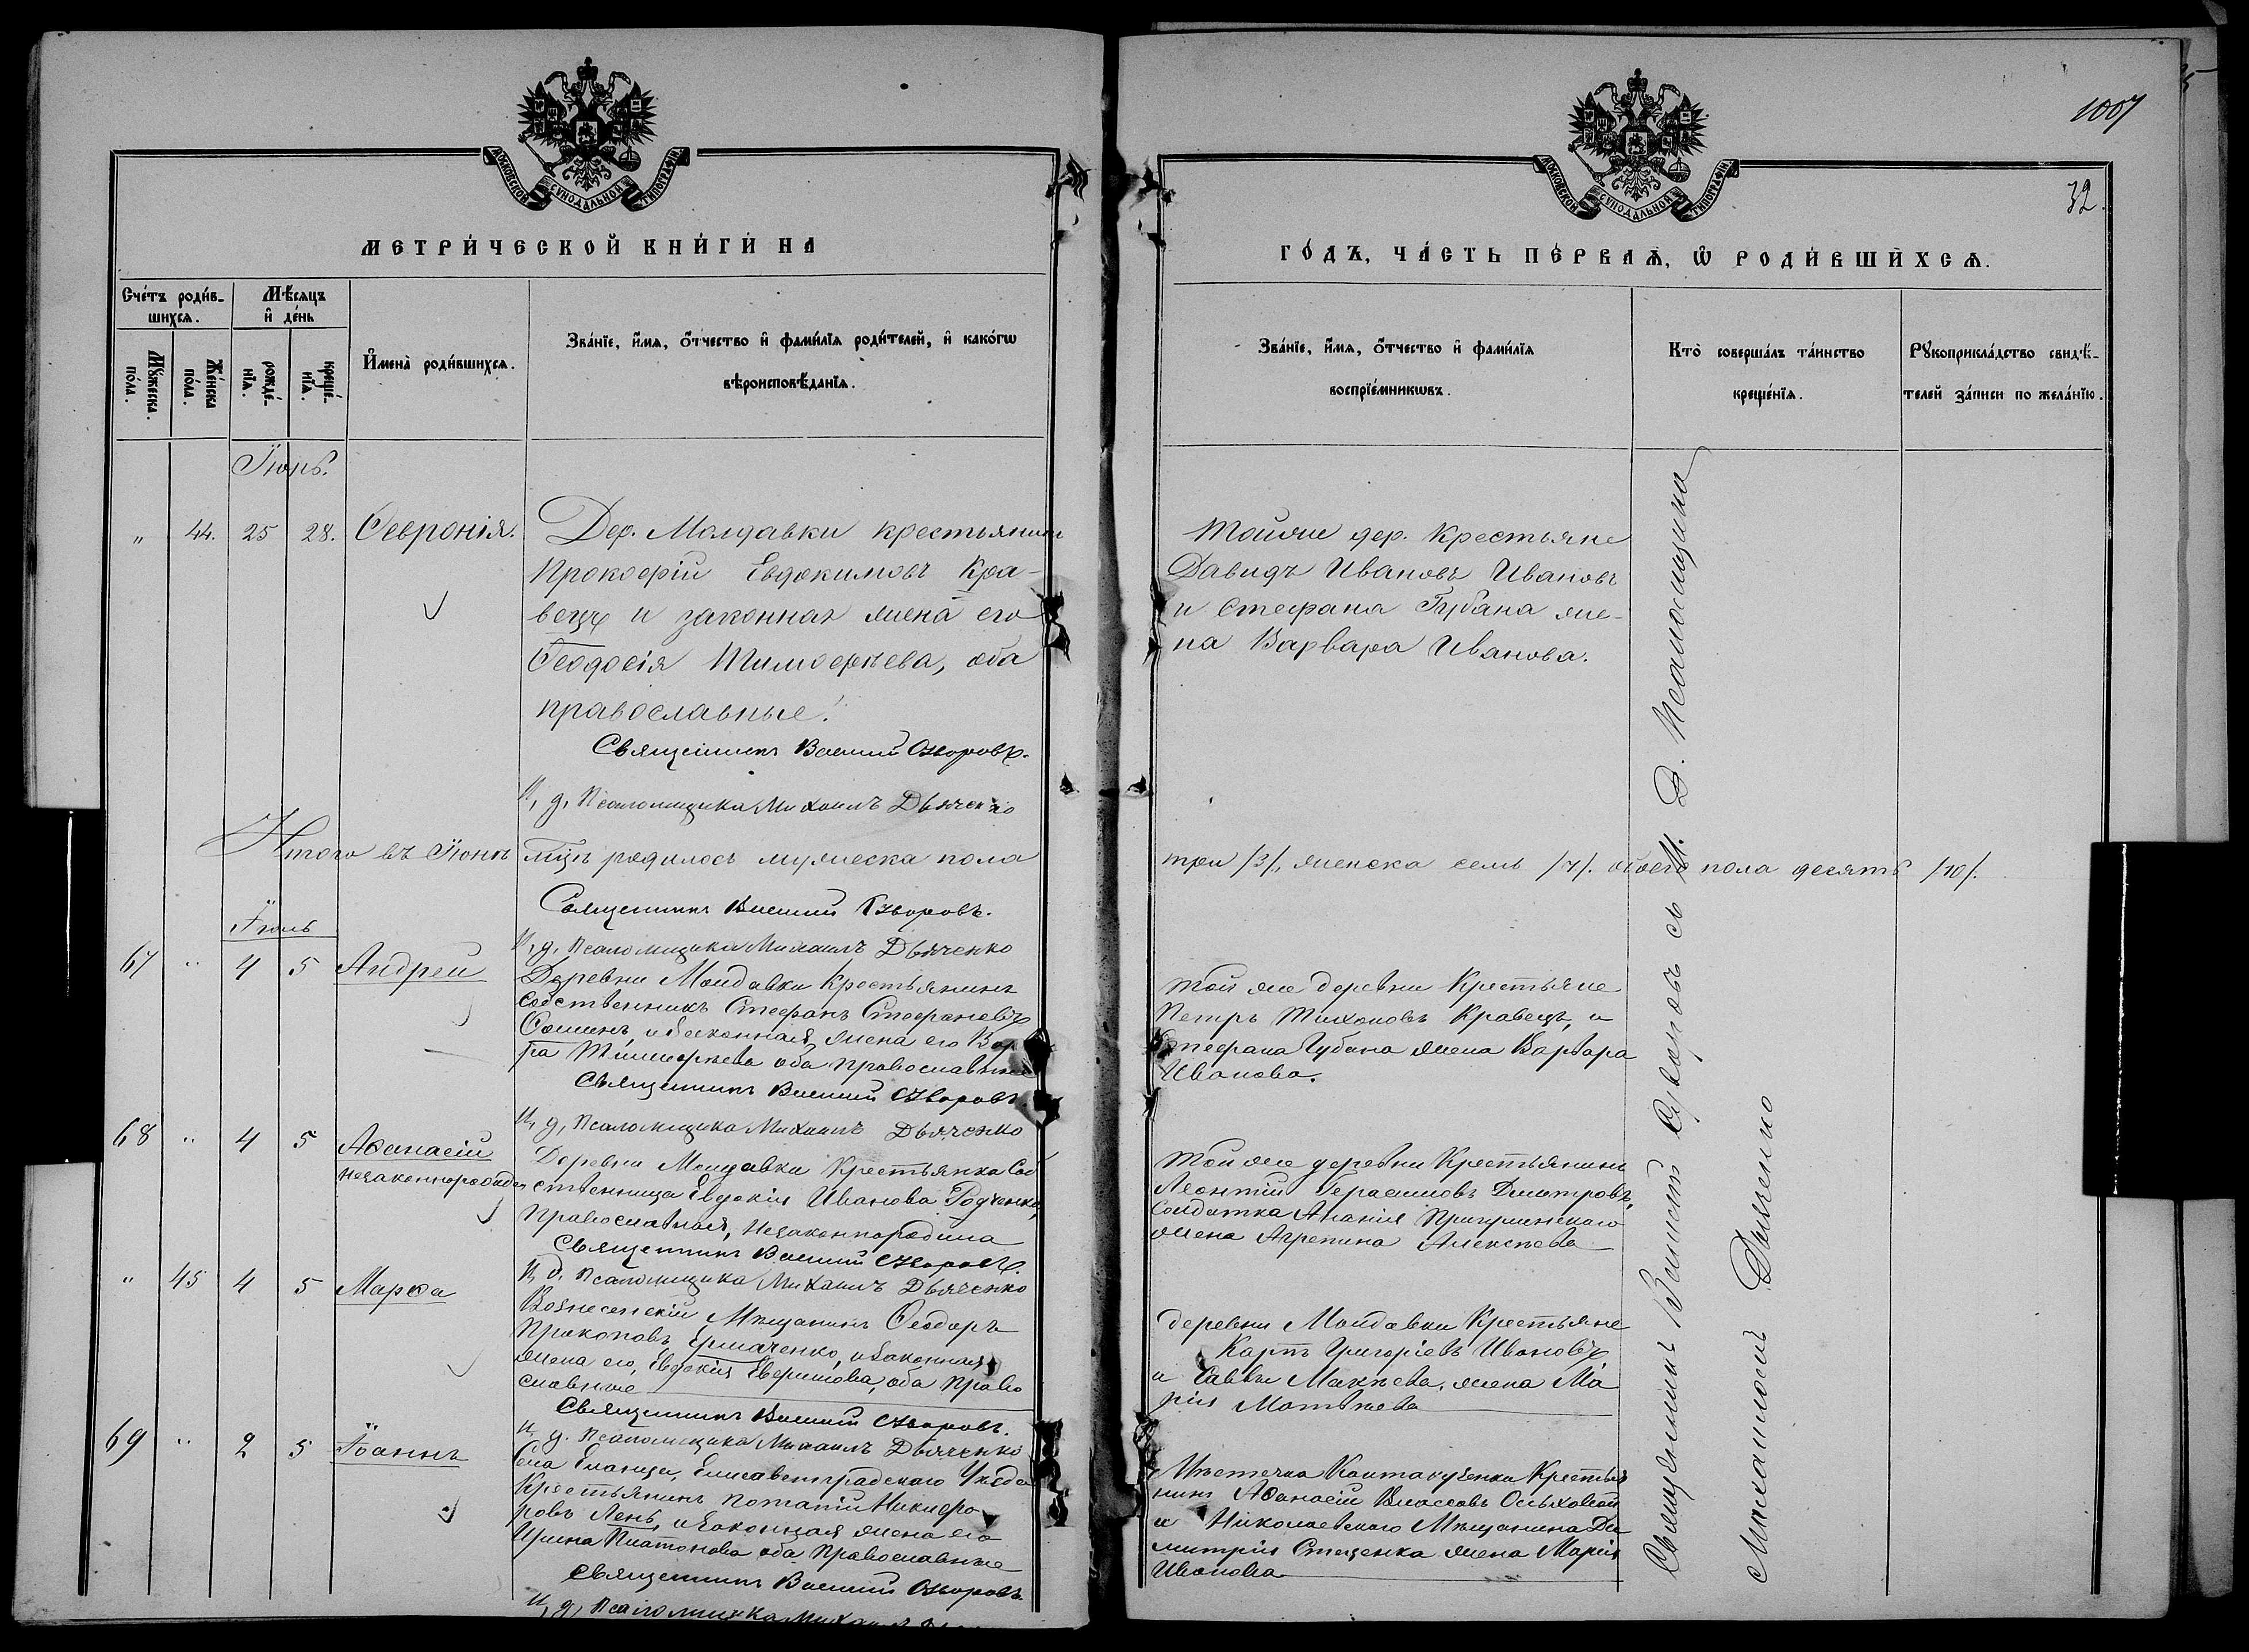 МОСКОВСКОЙ СУНОДАЛЬНОЙ ТИПОГРАФІИ
МЕТРИ́ЧЕСКОЙ КНИ́ГИ НА
Сче́тъ роди́в-
шихсѧ.
Мѣ́сяцъ
и҆ де́нь
Мꙋ́жеска по́ла.
Же́нска по́ла.
рожде́-
нїѧ.
креще́-
нїѧ.
И҆мена̀ роди́вшихсѧ.
Зва́нїе, и҆́мѧ, ѻ҆́тчество и҆ фами́лїѧ роди́телей, и҆ како́гѡ
вѣроисповѣ́данїѧ.
Іюнь.
" 44. 25 28. Ѳевронія.
Дер. Молдавки крестьянин
Прокофій Евдокимовъ Кра-
вецъ и законная жена его
Ѳеодосія Тимофѣева, оба
православные.
Священникъ Василий Суворовъ.
И, д, Псаломщика Михаилъ Дьяченко
Итого въ Іюнѣ мцѣ родилось мужеска пола
Священникъ Василий Суворовъ.
И, д, Псаломщика Михаилъ Дьяченко
Іюль
67 " 4 5 Андрей
Деревни Молдавки Крестьянинъ
Собственникъ Стефанъ Стефановъ
и законная жена его Вар
ра Тимофѣева оба православные
Священникъ Василий Суворовъ.
И, д, Псаломщика Михаилъ Дьяченко
68 " 4 5 Аѳанасій
незаконнорожден
Деревни Молдавки Крестьянка Соб
ственница Евдокія Иванова Родченко,
Православная, незаконнородила
Священникъ Василий Суворовъ.
И, д, Псаломщика Михаилъ Дьяченко
" 45 4 5 Марѳа
Вознесенскій Мѣщанинъ Ѳеодоръ
Прокоповъ Ермаченко, и законная
жена его, Евдокія Евфимова, оба право
славные
Священникъ Василий Суворовъ.
И, д. Псаломщика Михаилъ Дьяченко
69 " 2 5 Іоаннъ
Села Еланца, Елисаветградскаго Уѣзда
Крестьянинъ Потапій Никифо-
ровъ Лень, и законная жена его
Ирина Платонова оба Православные
Священникъ Василий Суворовъ.
И, д, Псаломщика Михаилъ
1007
32.
МОСКОВСКОЙ СУНОДАЛЬНОЙ ТИПОГРАФІИ
ГО́ДЪ, ЧА́СТЬ ПЕ́РВАѦ, Ѡ҆ РОДИ́ВШИХСѦ.
Зва́нїе, и҆́мѧ, ѻ҆́тчество и҆ фами́лїѧ
воспрїе́мникѡвъ.
Кто̀ соверша́лъ та́инство
креще́нїѧ.
Рꙋкоприкла́дство свидѣ́-
телей за́писи по жела́нїю.
Тойже дер. Крестьяне
Давидъ Ивановъ Ивановъ
и Стефана Губана же-
на Варвара Иванова.
три /3/, женска семь /7/. обоего пола десять /10/.
Той же деревни Крестьяне
Петръ Тихоновъ Кравецъ, и
Стефана Губана жена Варвара
Иванова.
Той же деревни Крестьянинъ
Леонтій Герасимовъ Дмитровъ,
Солдатка Ананія
жена Агрепина Алексѣева
Деревни Молдавки Крестьяне
Карпъ Григоріевъ Ивановъ
и Саввы Макѣева, жена Ма
рія Матвѣева
Мѣстечка Кантакузенки Крестья
нинъ Аѳанасій Власовъ
и Николаевскаго Мѣщанина Ди
митрія Стеценка жена Марія
Иванова
Священникъ Василій Суворовъ съ И. Д. Псаломщика
Михаиломъ Дьяченко